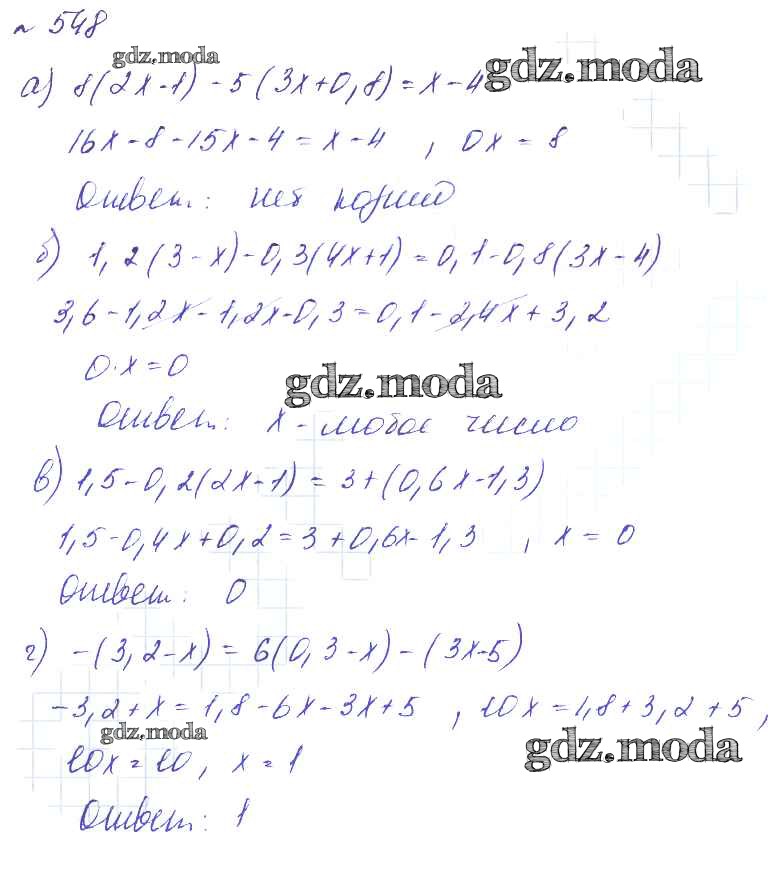 № 548
gdz.moda
а) 8(2x-1) - 5(3x+0,8) = x-4
gdz.moda
16x-8-15x-4 = x-4 , 0x = 8
Ответ: нет корней
б) 1,2(3-x)-0,3(4x+1) = 0,1-0,8(3x-4)
3,6-1,2x-1,2x-0,3=0,1-2,4x+3,2
0·x=0
gdz.moda
Ответ: x - любое число
в) 1,5-0,2(2x-1) = 3+(0,6x-1,3)
1,5-0,4x+0,2=3+0,6x-1,3 , x = 0
Ответ: 0
г) -(3,2-x) = 6(0,3-x)-(3x-5)
-3,2+x=1,8-6x-3x+5 , 10x=1,8+3,2+5,
gdz.moda
10x=10, x=1
gdz.moda
Ответ: 1